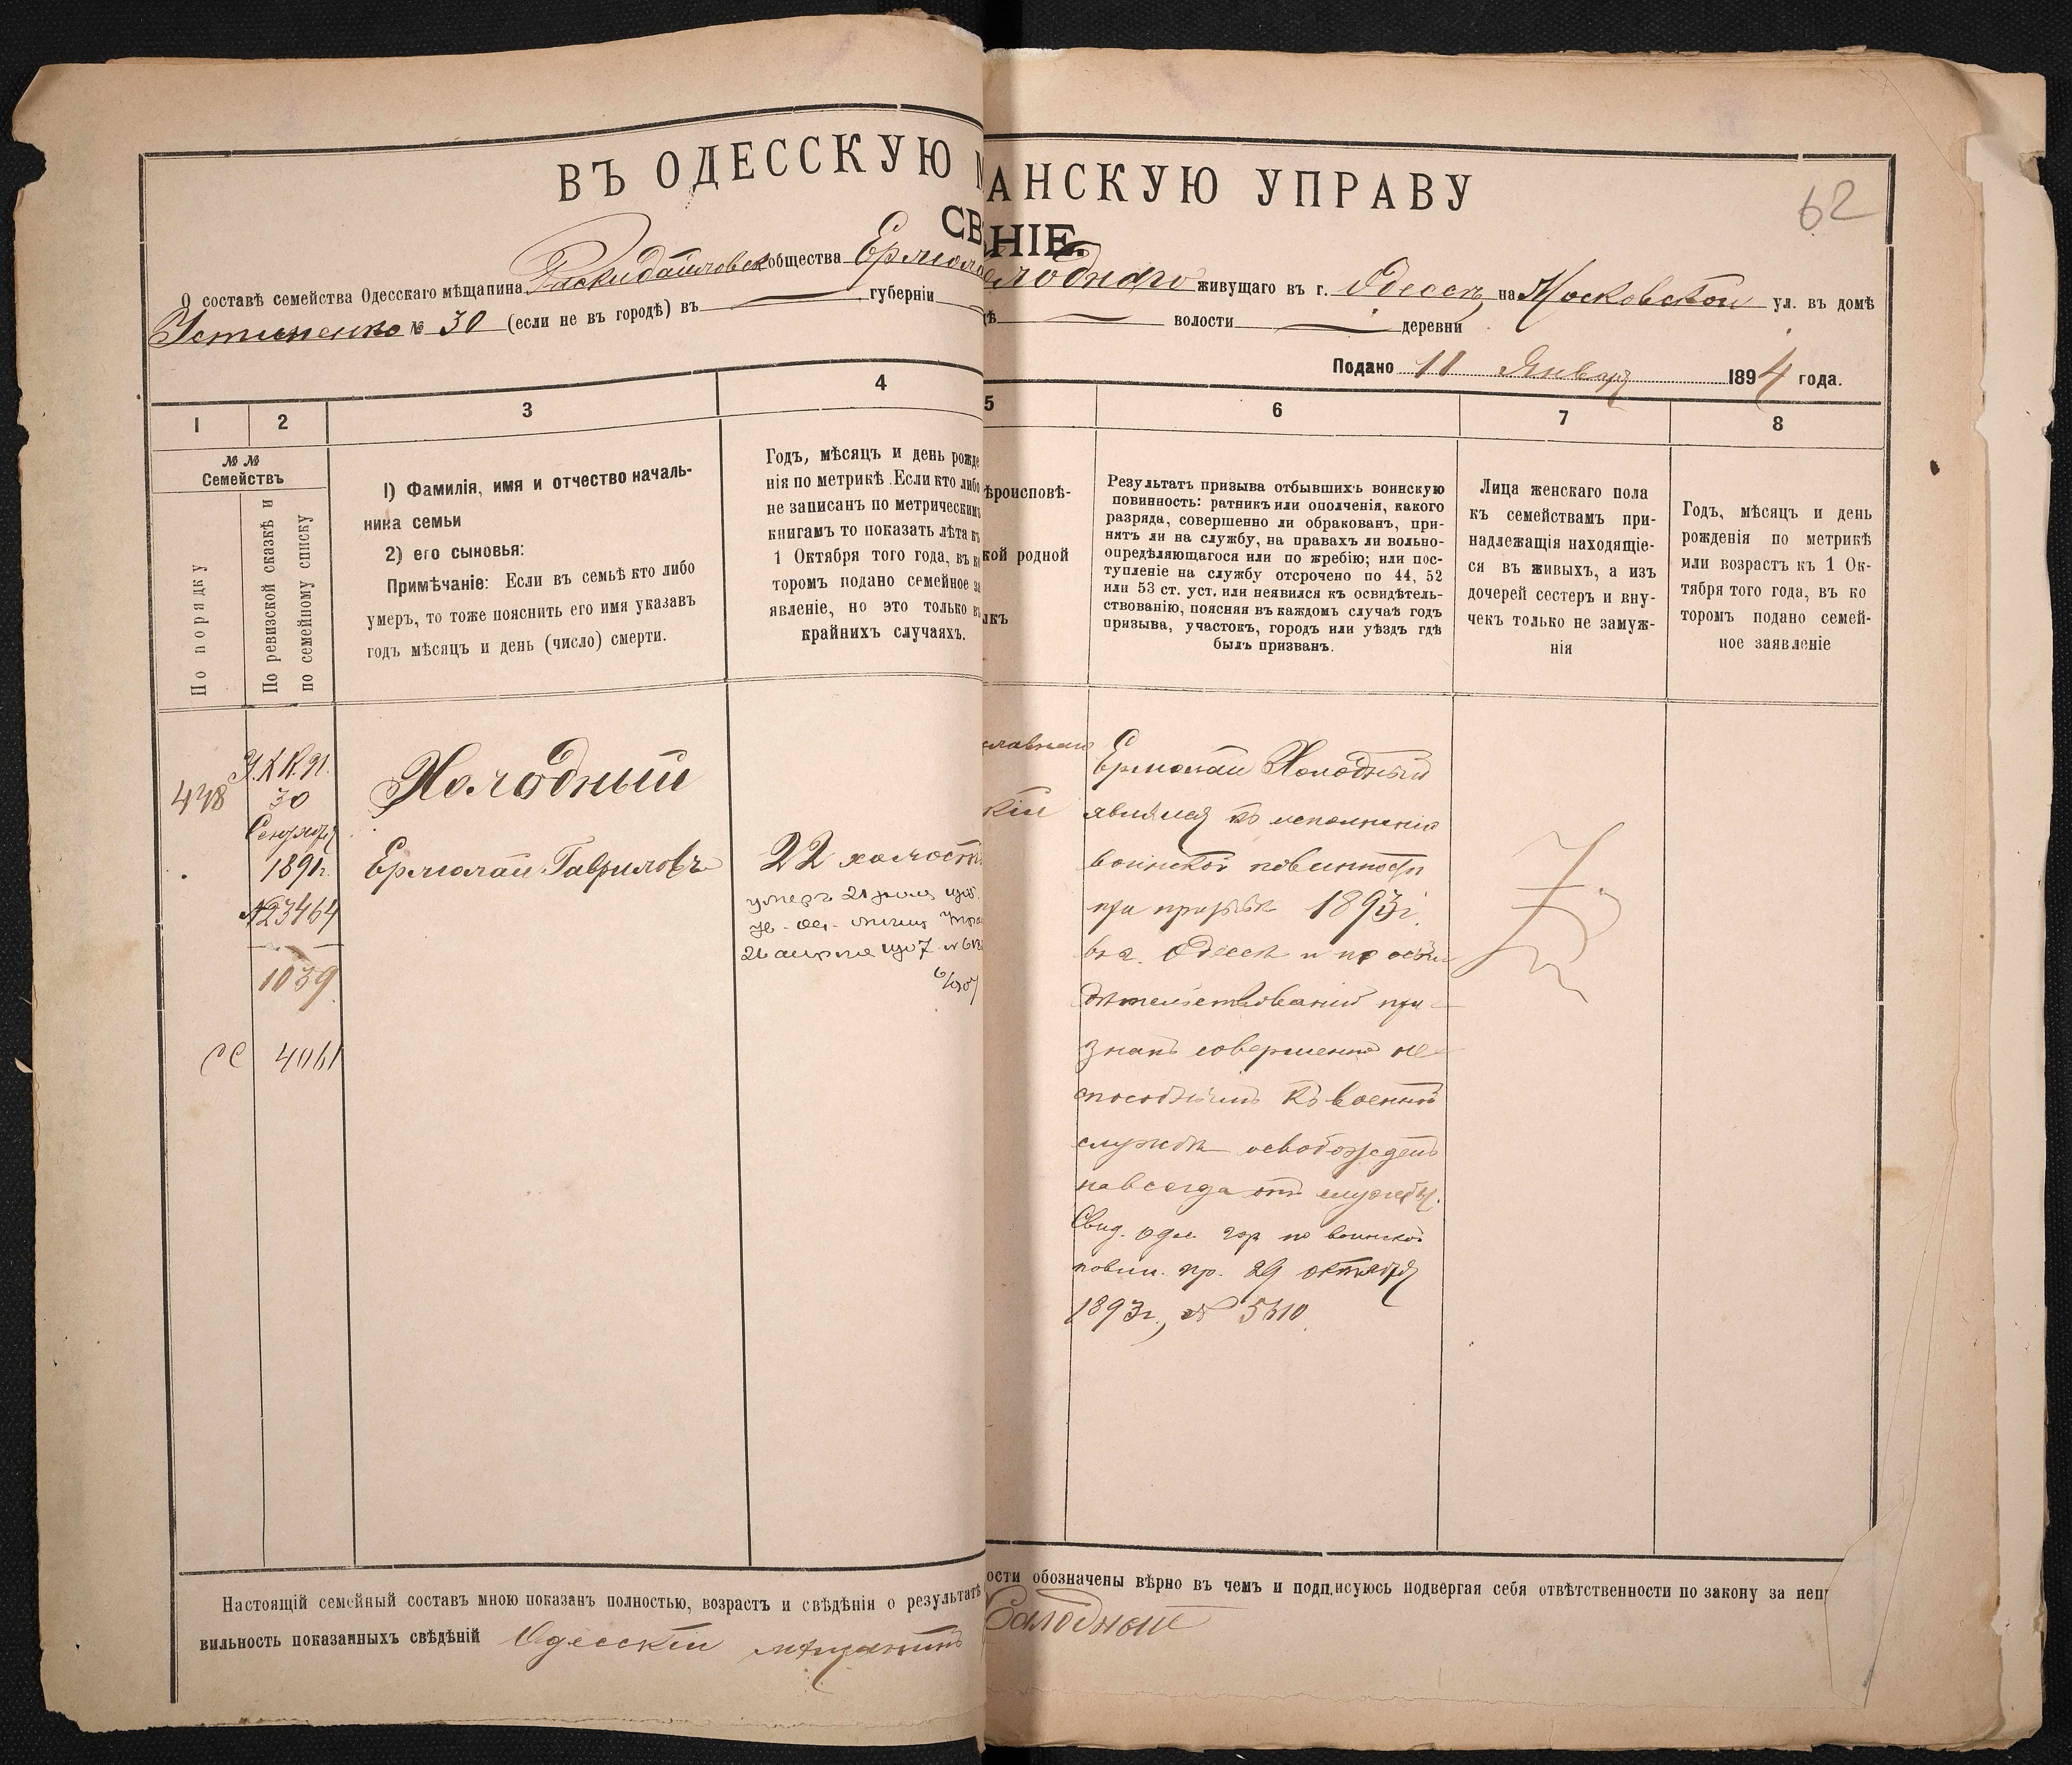 62
ВЪ ОДЕССКУЮ М АНСКУЮ УПРАВУ
СВ НІЕ.
О составѣ семейства Одесскаго мѣщанина Раскидайловск общества Ермола лоднаго живущаго въ г. Одессѣ на Московской ул. въ домѣ
Устименко № 30 (если не въ городѣ) въ губерніи волости деревни
Подано 11 Января 1894 года.
1 2 3 4 5 6 7 8
№№
Семействъ
По порядку
По ревизской сказкѣ и
по семейному списку
1) Фамилія, имя и отчество началь-
ника семьи
2) его сыновья:
Примѣчаніе: Если въ семьѣ кто либо
умеръ, то тоже пояснить его имя указавъ
годъ мѣсяцъ и день (число) смерти.
Годъ, мѣсяцъ и день рожде
нія по метрикѣ. Если кто либо
не записанъ по метрическимъ
книгамъ то показать лѣта къ
1 Октября того года, въ ко
торомъ подано семейное за
явленіе, но это только въ
крайнихъ случаяхъ.
ѣроисповѣ-
кой родной
лкъ
Результатъ призыва отбывшихъ воинскую
повинность: ратникъ или ополченія, какого
разряда, совершенно ли обракованъ, при-
нятъ ли на службу, на правахъ ли вольно-
опредѣляющагося или по жребію; или пос-
тупленіе на службу отсрочено по 44, 52
или 53 ст. уст. или неявился къ освидѣтель-
ствованію, поясняя въ каждомъ случаѣ годъ
призыва, участокъ, городъ или уѣздъ гдѣ
былъ призванъ.
Лица женскаго пола
къ семействамъ при-
надлежащія находящіе-
ся въ живыхъ, а изъ
дочерей сестеръ и вну-
чекъ только не замуж-
нія
Годъ, мѣсяцъ и день
рожденія по метрикѣ
или возрастъ къ 1 Ок-
тября того года, въ ко
торомъ подано семей-
ное заявленіе
448
30
Сентября
1891г.
№23464
1039
СС 4061
Холодный
Ермолай Гавриловъ
22 холост
умеръ 21
№
6/907
славнаго
кій
Ермолай Холодный
явился къ исполненію
воинской повинности
при призывѣ 1893г.
въ г. Одессѣ и по осви
дѣтельствованіи при-
знанъ совершенно не-
способнымъ къ военной
службѣ освобожденъ
навсегда отъ службы.
Свид. Одес. гор. по воинской
повин. пр. 29 октября
1893г., № 5610
Настоящій семейный составъ мною показанъ полностью, возрастъ и свѣдѣнія о результатѣ ости обозначены вѣрно въ чемъ и подписуюсь подвергая себя отвѣтственности по закону за неп
вильность показанныхъ свѣдѣній Одесскій мѣщанинъ Халодный